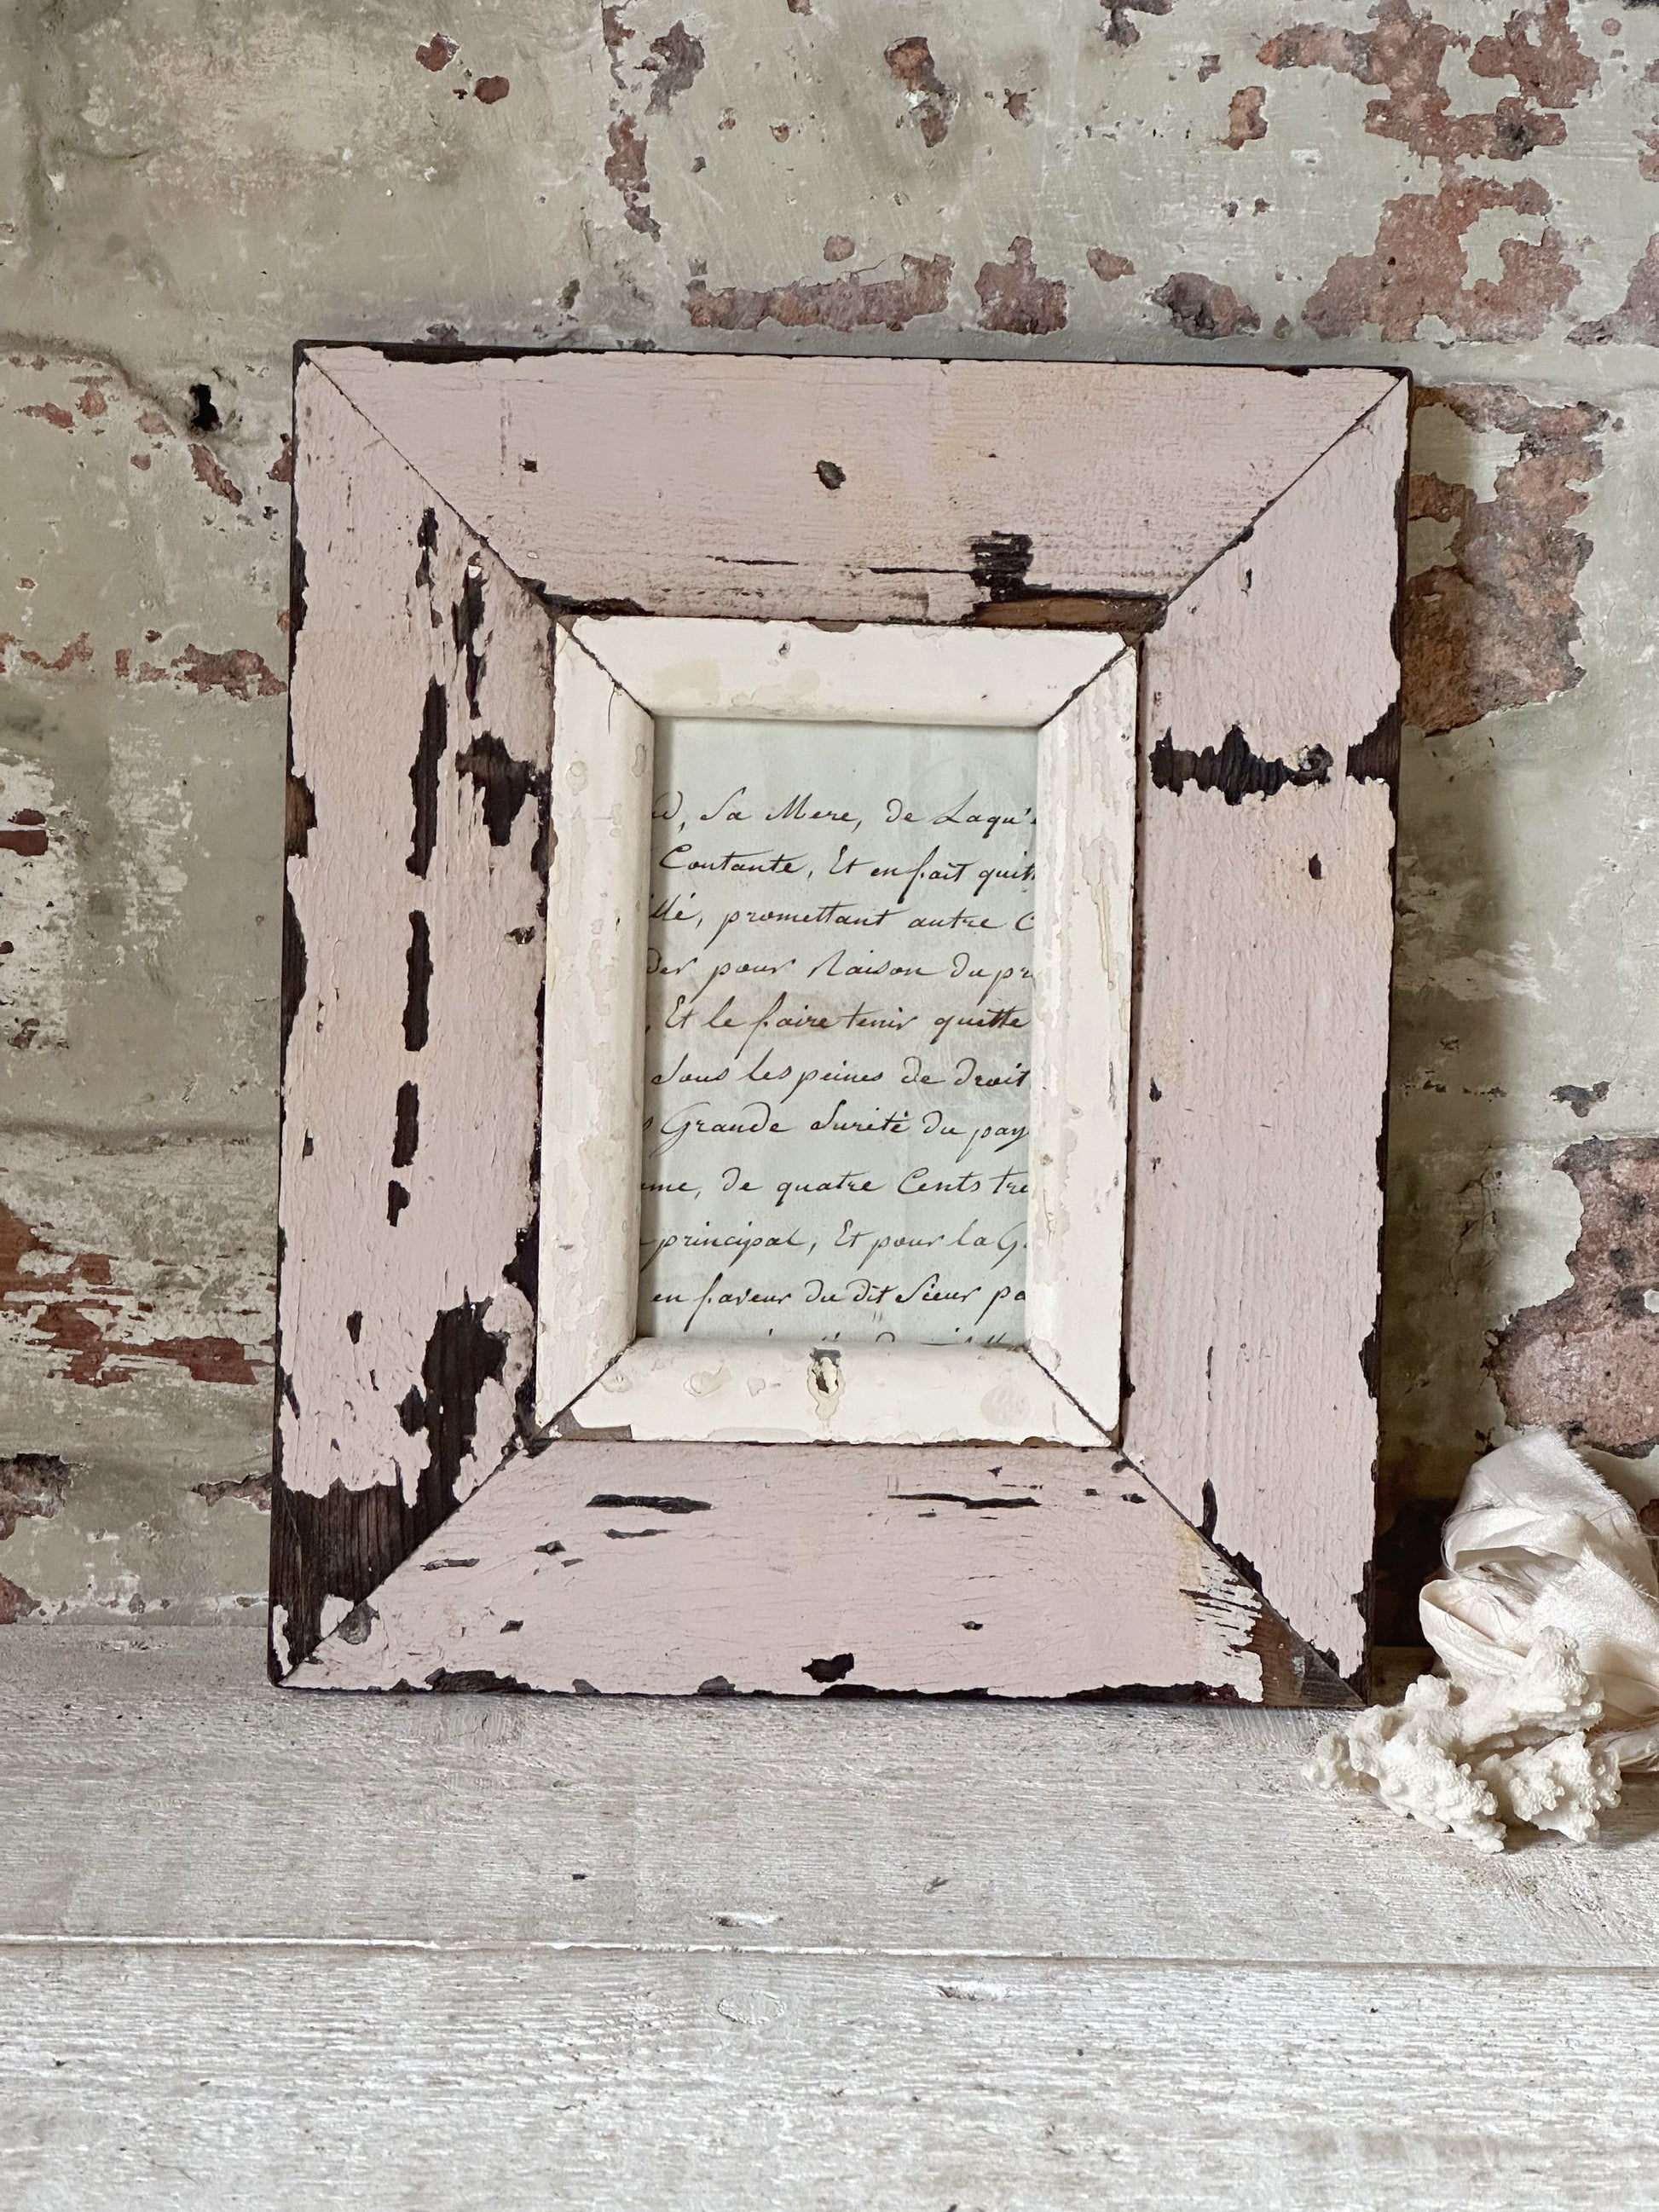 , Sa Mere, de Laqu'
Contante, Et en fait quitt
llé, promettant autre C
der pour Raison du pr
, Et le faire tenir quitte
Sous les peines de droit
Grande Sureté du pay
me, de quatre Cents tre
principal, Et pour la G
en faveur du dit Sieur pa